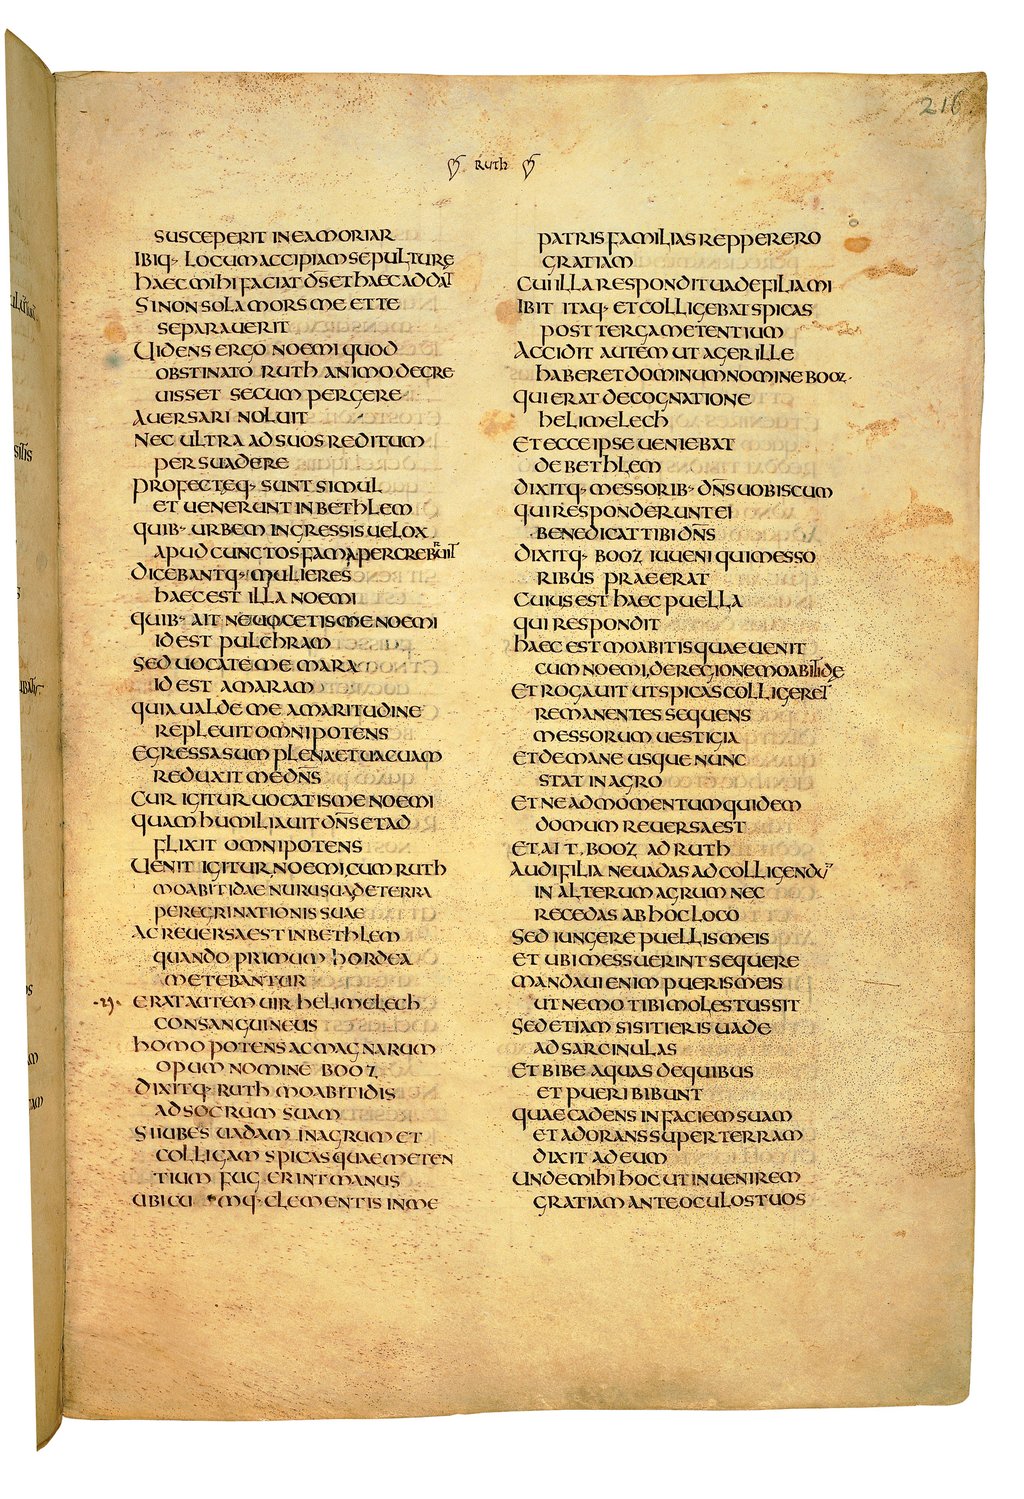 216
RUTH
SUSCEPERIT IN EA MORIAR
IBIQ· LOCUM ACCIPIAM SEPULTURE
HAEC MIHI FACIAT DN̄S ET HAEC ADDAT
SI NON SOLA MORS ME ET TE
SEPARAUERIT
UIDENS ERGO NOEMI QUOD
OBSTINATO RUTH ANIMO DECRE
UISSET SECUM PERGERE
AUERSARI NOLUIT
NEC ULTRA AD SUOS REDITUM
PERSUADERE
PROFECTEQ· SUNT SIMUL
ET UENERUNT IN BETHLEM
QUIB· URBEM INGRESSIS UELOX
APUD CUNCTOS FAMA PERCREBRUIT
DICEBANTQ· MULIERES
HAEC EST ILLA NOEMI
QUIB· AIT NE UOCETIS ME NOEMI
ID EST PULCHRAM
SED UOCATE ME MARA
ID EST AMARAM
QUIA UALDE ME AMARITUDINE
REPLEUIT OMNIPOTENS
EGRESSA SUM PLENA ET UACUAM
REDUXIT ME DN̄S
CUR IGITUR UOCATIS ME NOEMI
QUAM HUMILIAUIT DN̄S ET AD
FLIXIT OMNIPOTENS
UENIT IGITUR NOEMI CUM RUTH
MOABITIDAE NURU SUA DE TERRA
PEREGRINATIONIS SUAE
AC REUERSA EST IN BETHLEM
QUANDO PRIMUM HORDEA
METEBANTUR
ERAT AUTEM UIR HELIMELECH
CONSANGUINEUS
HOMO POTENS AC MAGNARUM
OPUM NOMINE BOOZ
DIXITQ· RUTH MOABITIDIS
AD SOCRUM SUAM
SI IUBES UADAM IN AGRUM ET
COLLIGAM SPICAS QUAE METEN
TIUM FUGERINT MANUS
UBICU MQ· CLEMENTIS IN ME
PATRIS FAMILIAS REPPERERO
GRATIAM
CUI ILLA RESPONDIT UADE FILIA MI
IBIT ITAQ· ET COLLIGEBAT SPICAS
POST TERGA METENTIUM
ACCIDIT AUTEM UT AGER ILLE
HABERET DOMINUM NOMINE BOOZ·
QUI ERAT DE COGNATIONE
HELIMELECH
ET ECCE IPSE UENIEBAT
DE BETHLEM
DIXITQ· MESSORIB· DN̄S UOBISCUM
QUI RESPONDERUNT EI
BENEDICAT TIBI DN̄S
DIXITQ· BOOZ IUUENI QUI MESSO
RIBUS PRAEERAT
CUIUS EST HAEC PUELLA
QUI RESPONDIT
HAEC EST MOABITIS QUAE UENIT
CUM NOEMI DE REGIONE MOABITIDE
ET ROGAUIT UT SPICAS COLLIGERET
REMANENTES SEQUENS
MESSORUM UESTIGIA
ET DE MANE USQUE NUNC
STAT IN AGRO
ET NE AD MOMENTUM QUIDEM
DOMUM REUERSA EST
ET AIT BOOZ AD RUTH
AUDI FILIA NE UADAS AD COLLIGENDU̅
IN ALTERUM AGRUM NEC
RECEDAS AB HOC LOCO
SED IUNGERE PUELLIS MEIS
ET UBI MESSUERINT SEQUERE
MANDAUI ENIM PUERIS MEIS
UT NEMO TIBI MOLESTUS SIT
SED ETIAM SI SITIERIS UADE
AD SARCINULAS
ET BIBE AQUAS DE QUIBUS
ET PUERI BIBUNT
QUAE CADENS IN FACIEM SUAM
ET ADORANS SUPER TERRAM
DIXIT AD EUM
UNDE MIHI HOC UT INUENIREM
GRATIAM ANTE OCULOS TUOS